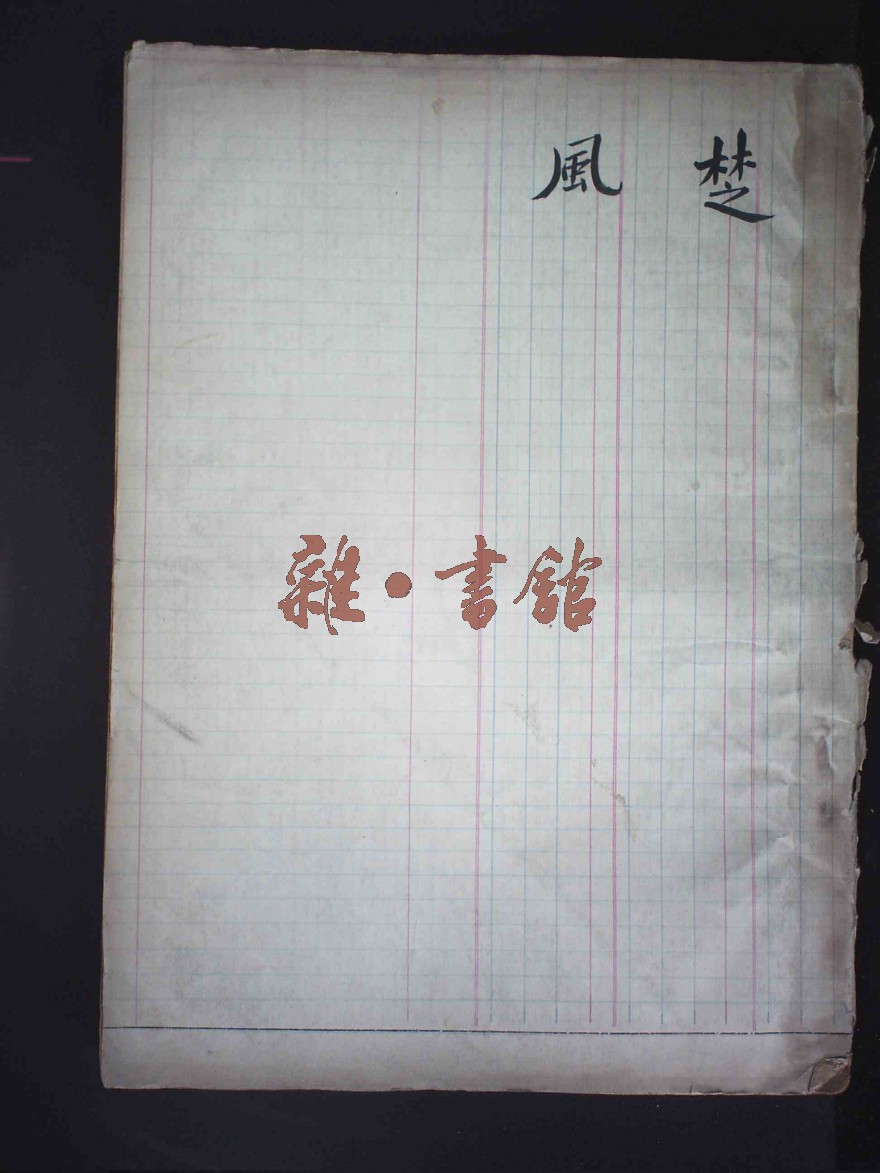 楚風
雜·書館